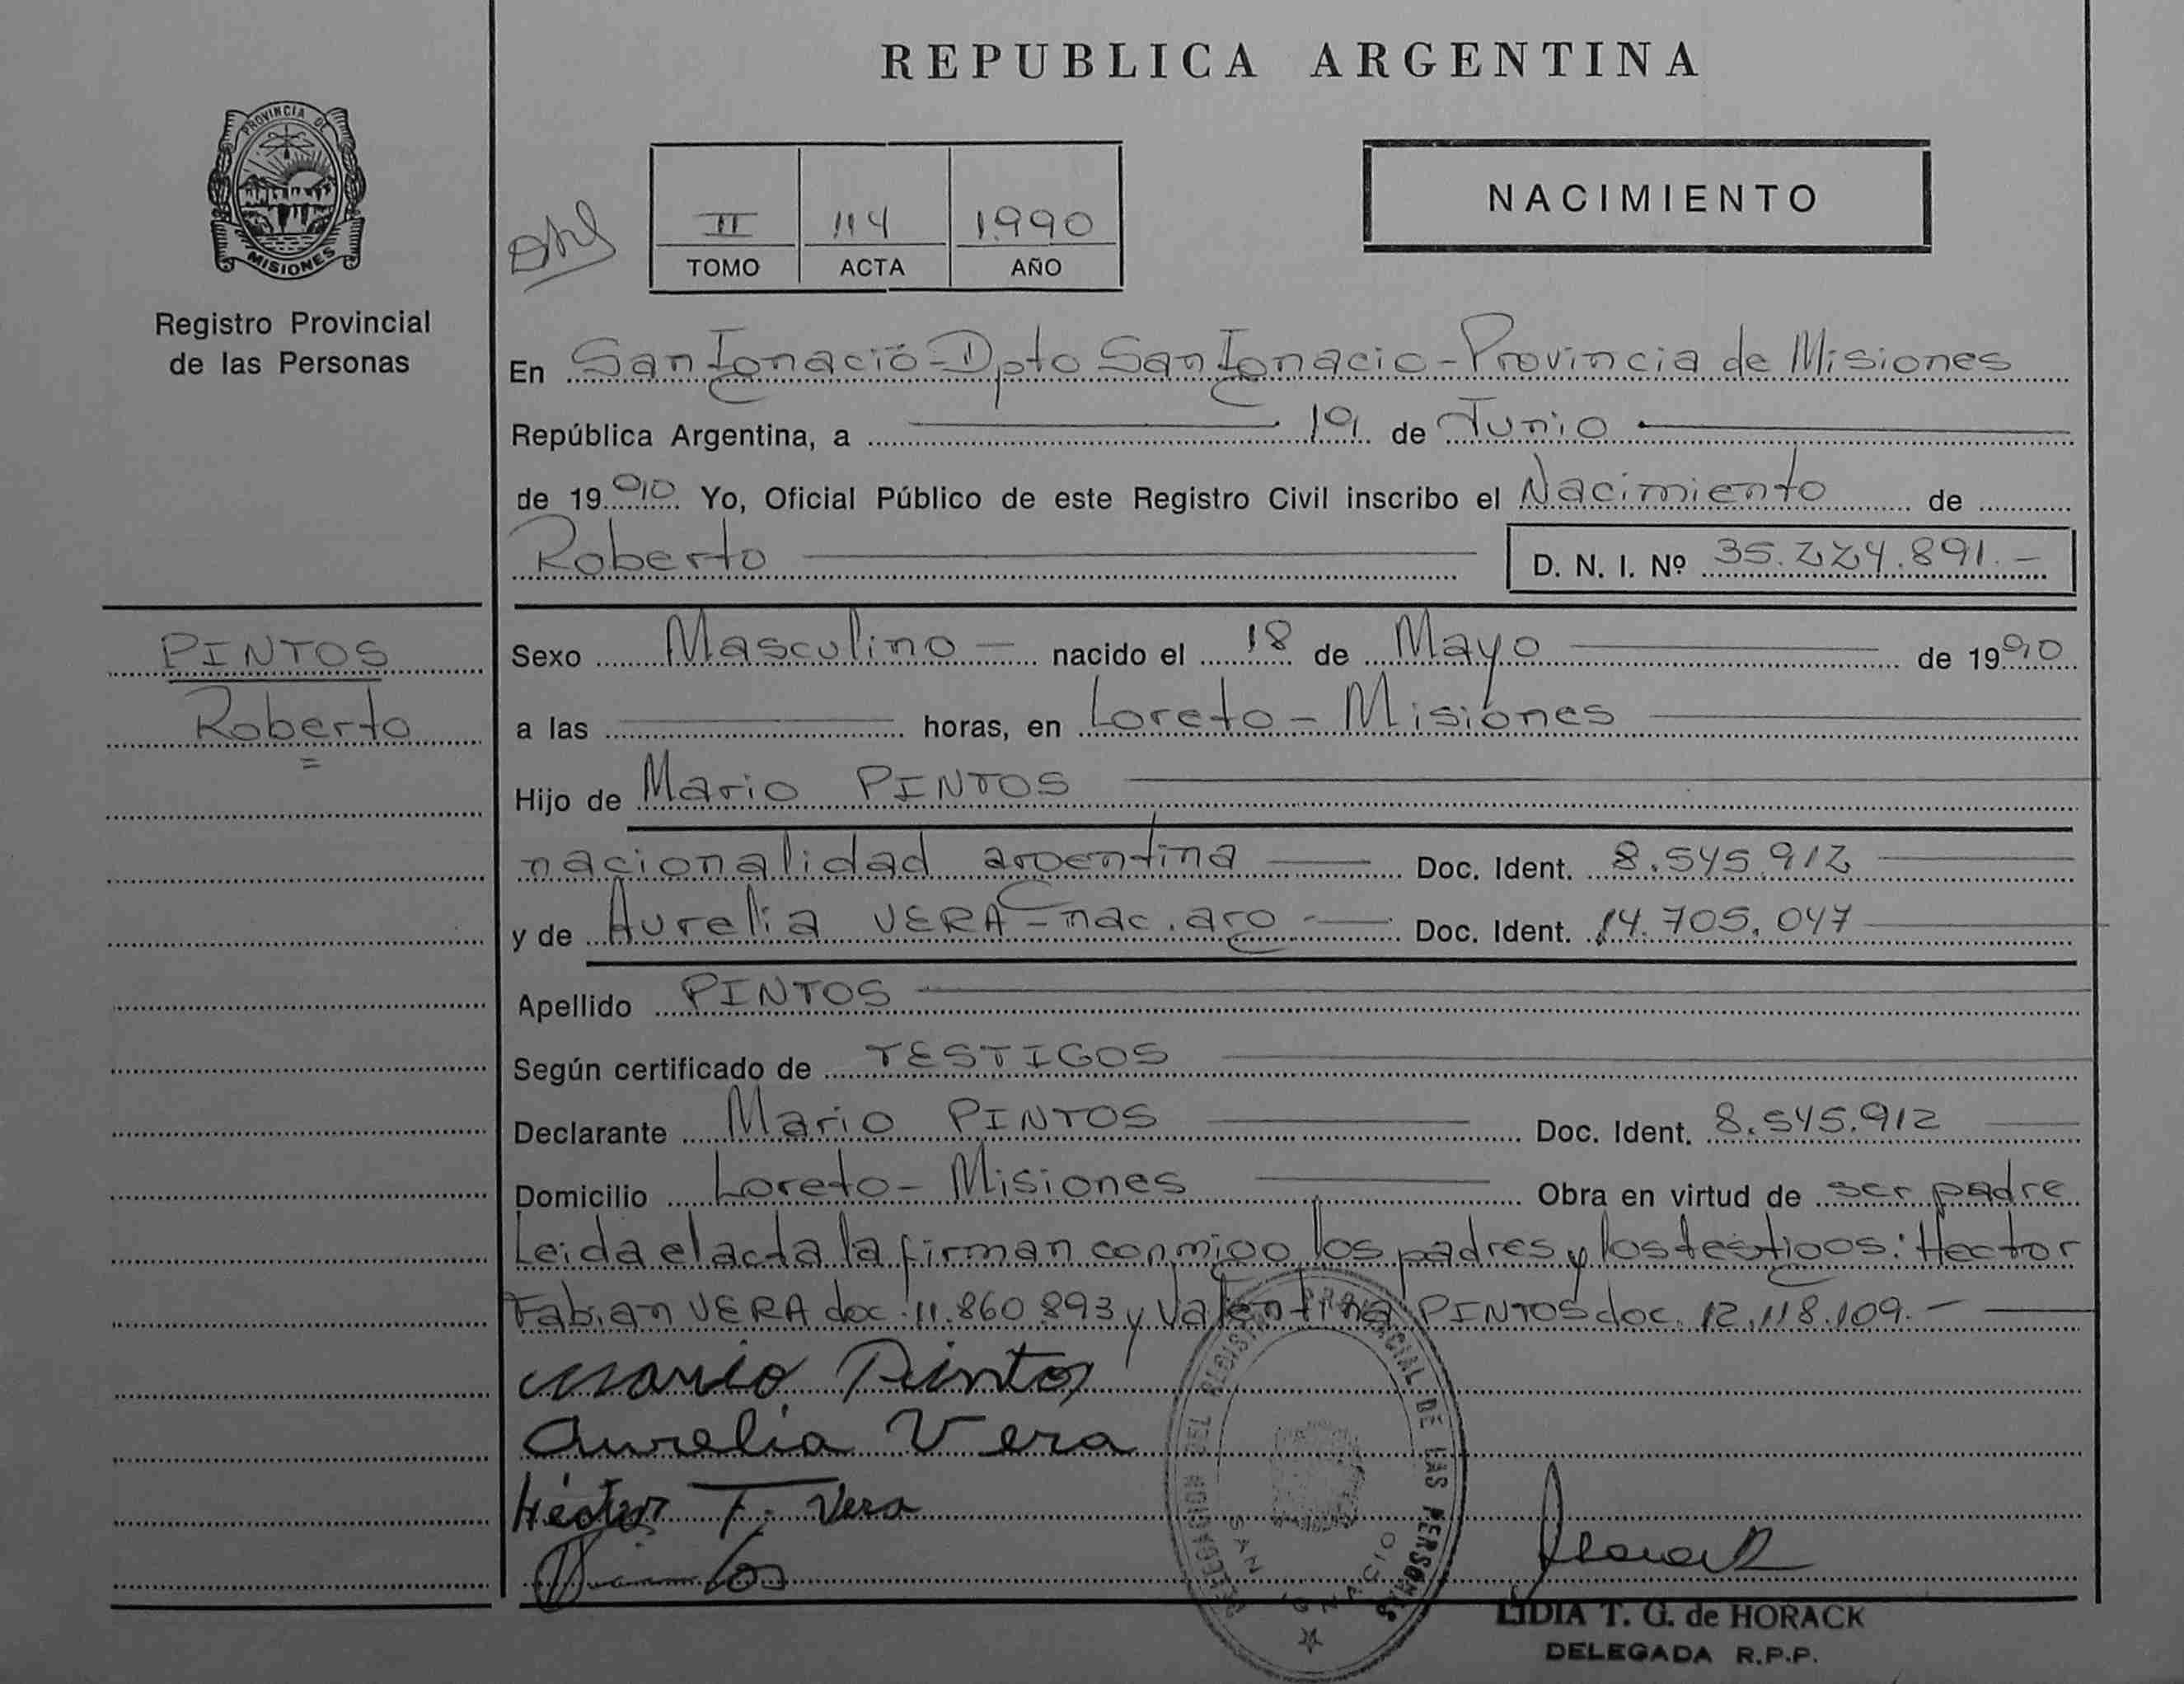 REPUBLICA ARGENTINA
PROVINCIA DE
MISIONES
Registro Provincial
de las Personas
II 114 1.990
TOMO ACTA AÑO
NACIMIENTO
En San Ignacio - Dpto San Ignacio - Provincia de Misiones
República Argentina, a 19 de Junio
de 1990 Yo, Oficial Público de este Registro Civil inscribo el Nacimiento de
Roberto D. N. I. Nº 35.224.891.-
PINTOS
Roberto
Sexo Masculino - nacido el 18 de Mayo de 1990
a las horas, en Loreto - Misiones
Hijo de Mario PINTOS
nacionalidad argentina Doc. Ident. 8.545.912
y de Aurelia VERA - nac. arg - Doc. Ident. 14.705.047
Apellido PINTOS
Según certificado de TESTIGOS
Declarante Mario PINTOS Doc. Ident. 8.545.912
Domicilio Loreto - Misiones Obra en virtud de ser padre
Leida el acta la firman conmigo los padres y los testigos: Hector
Fabian VERA doc. 11.860.893 y Valentina PINTOS doc. 12.118.109.-
Mario Pintos
Aurelia Vera
Héctor F. Vera
DELEGACION DEL REGISTRO PROVINCIAL DE LAS PERSONAS
SAN IGNACIO
LIDIA T. G. de HORACK
DELEGADA R.P.P.